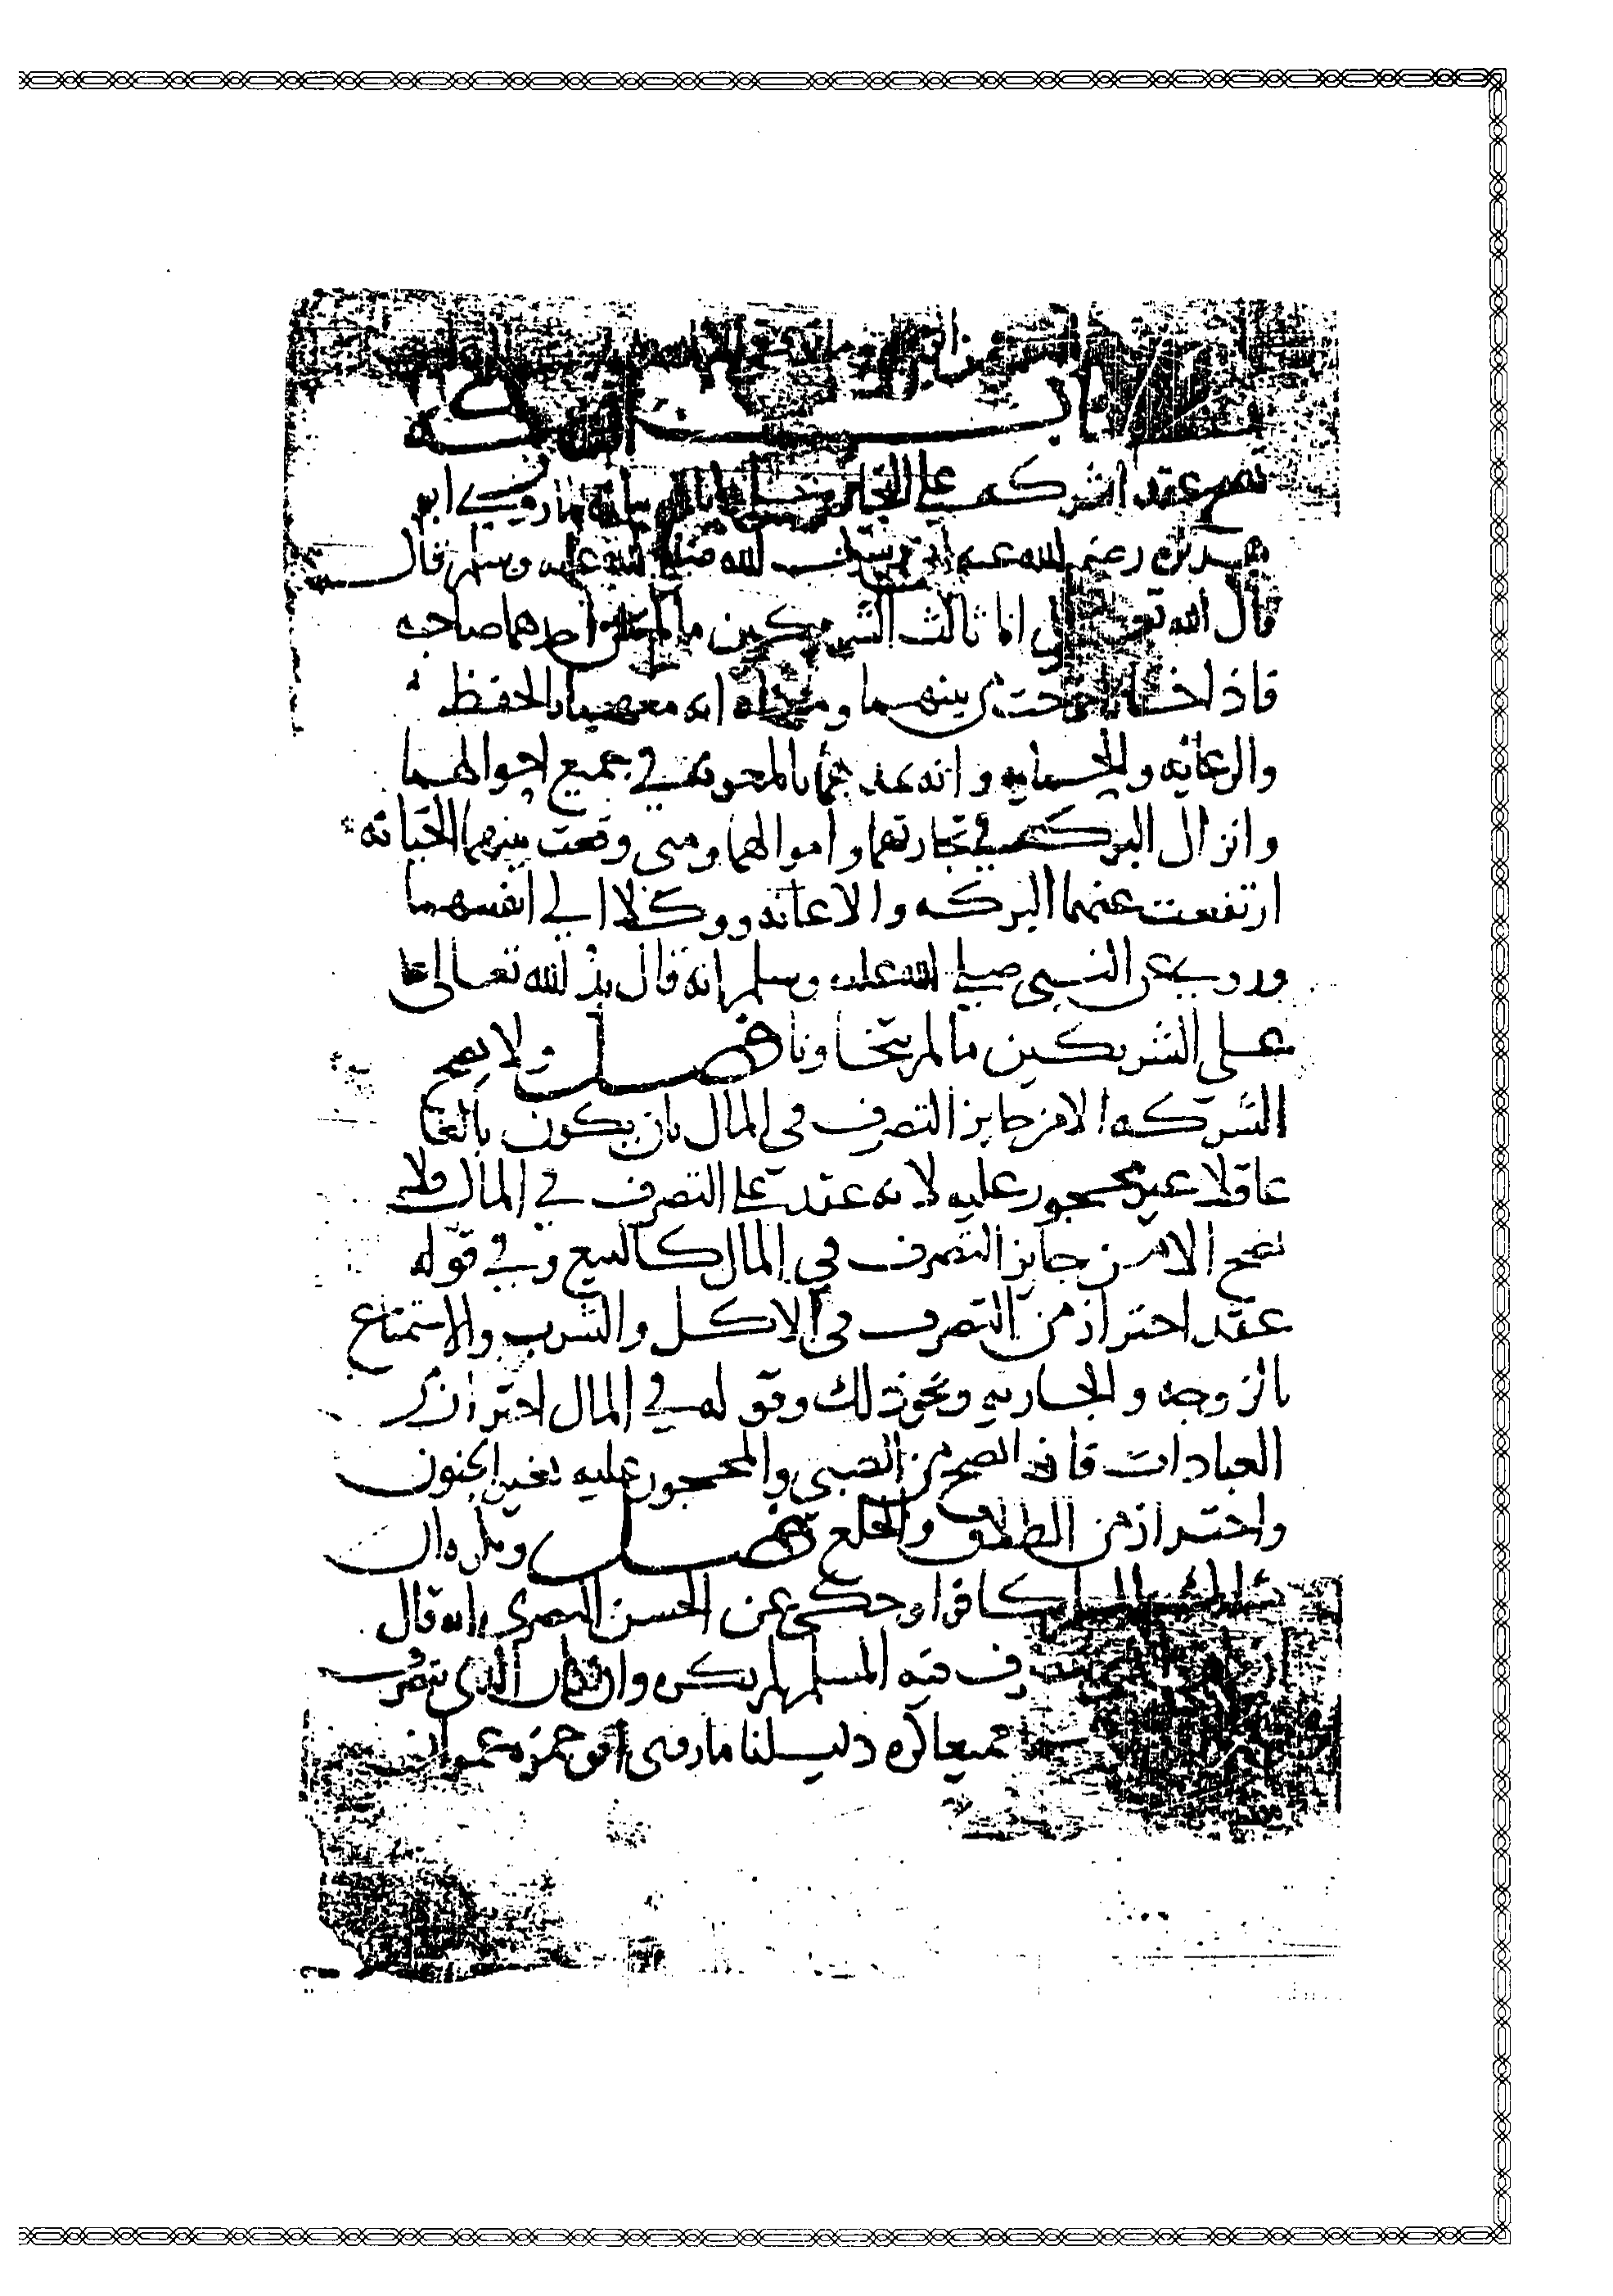 كتاب الشركة
يصح عقد الشركه على التجارة لما روى ابو
هريرة رضي الله عنه ان رسول الله صلى الله عليه وسلم قال
قال الله تعالى انا ثالث الشريكين ما لم يخن احدهما صاحبه
فاذا خانا خرجت من بينهما ومعناه انه معهما بالحفظ
والرعايه والحمايه وانه عد هما بالمعونه في جميع احوالهما
وانزال البركه في تجارتهما واموالهما ومتى وقعت بينهما الخيانه
ارتفعت عنهما البركه والاعانه ووكلا الى انفسهما
وروي عن النبي صلى الله عليه وسلم انه قال يد الله تعالى
على الشريكين ما لم يتخاونا فصل ولا يصح
الشركه الا من جايز التصرف في المال بان يكون بالغا
عاقلا غير محجور عليه لانه عقد على التصرف في المال فلا
يصح الا من جايز التصرف في المال كالبيع وفي قوله
عقد احتراز من التصرف في الاكل والشرب والاستمتاع
بالزوجه والجاريه ونحو ذلك وقوله في المال احتراز من
العبادات فانه تصح من الصبي والمحجور عليه بغير الجنون
واحتراز من الطلاق والخلع فصل ويكره ان
يشارك المسلم كافرا وحكي عن الحسن البصري انه قال
يتصرف فيه المسلم لم يكره وان كان الذي يتصرف
جميعا كره دليلنا ما روى ابو حمزه عمران